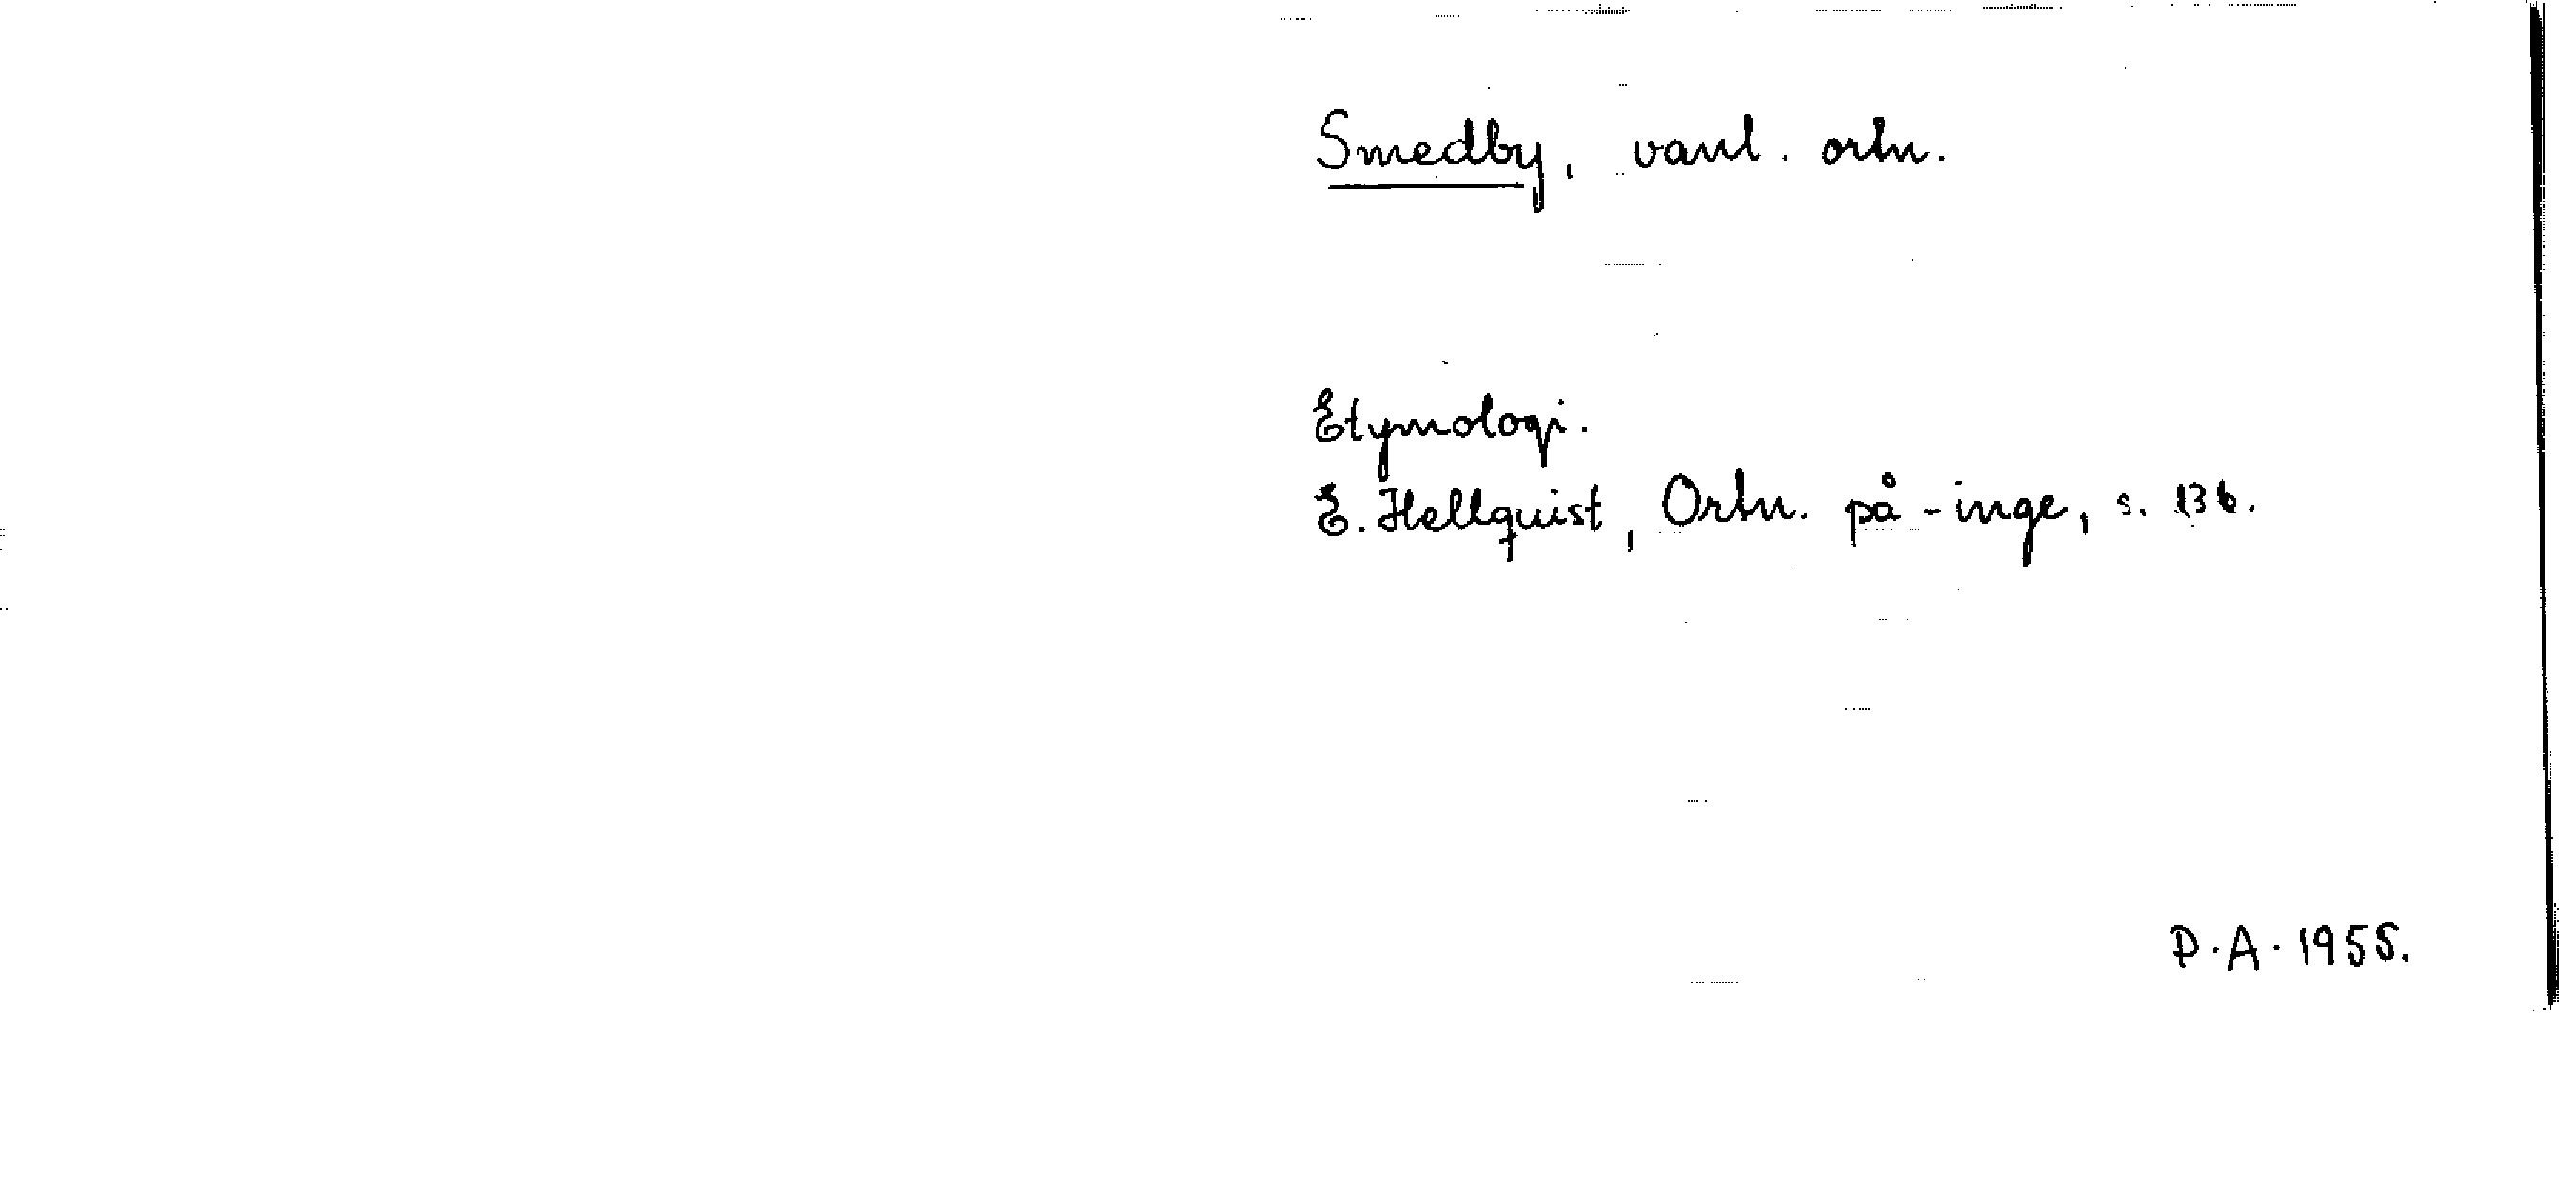 Smedby, vanl. ortn.
Etymologi.
E. Hellquist, Ortn. på -inge, s. 136.
P.A. 1955.